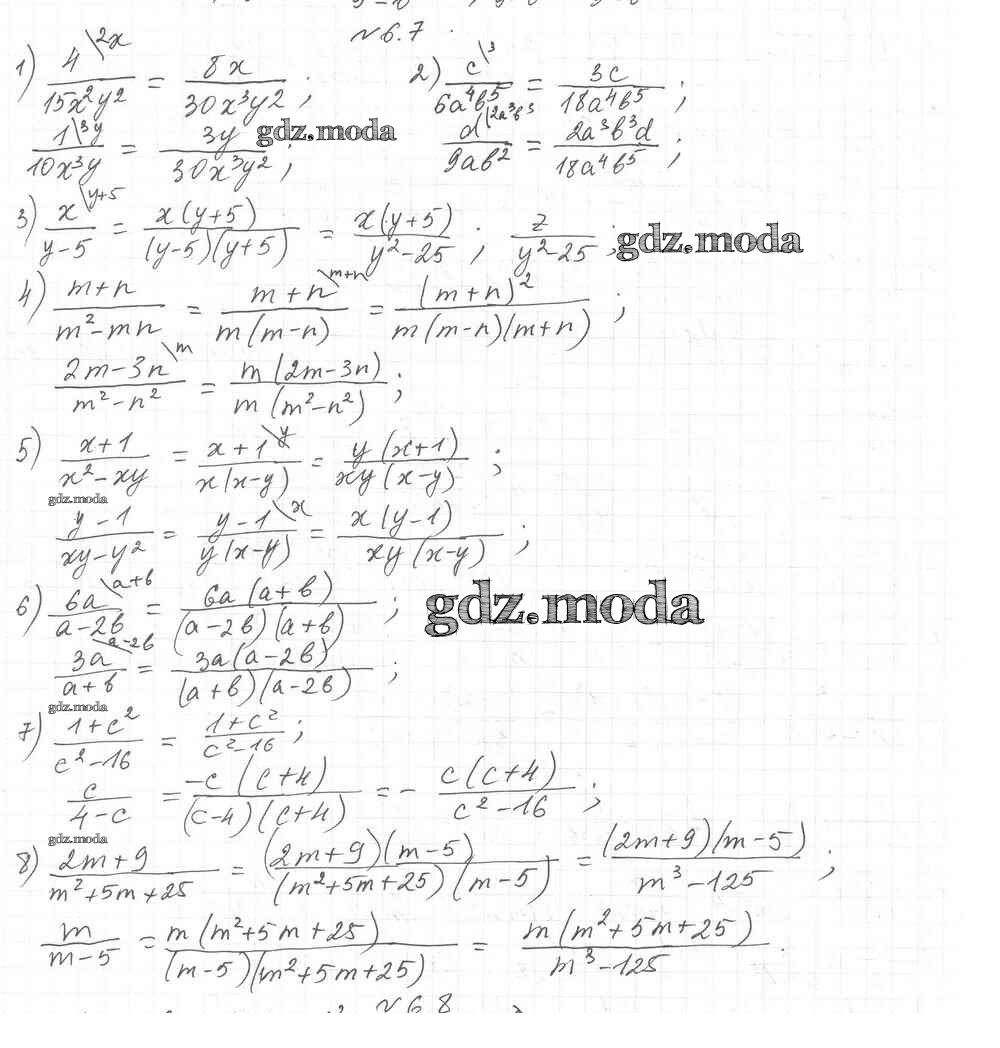 №6.7.
1) 4\2x / 15x²y² = 8x / 30x³y² ; 2) c\3 / 6a⁴b⁵ = 3c / 18a⁴b⁵ ;
1\3y / 10x³y = 3y / 30x³y² ; d\2a³b³ / 9ab² = 2a³b³d / 18a⁴b⁵ ;
gdz.moda
3) x\y+5 / y-5 = x(y+5) / (y-5)(y+5) = x(y+5) / y²-25 ; z / y²-25 ;
gdz.moda
4) m+n / m²-mn = m+n\m+n / m(m-n) = (m+n)² / m(m-n)(m+n) ;
2m-3n\m / m²-n² = m(2m-3n) / m(m²-n²) ;
5) x+1 / x²-xy = x+1\y / x(x-y) = y(x+1) / xy(x-y) ;
gdz.moda
y-1 / xy-y² = y-1\x / y(x-y) = x(y-1) / xy(x-y) ;
6) 6a\a+b / a-2b = 6a(a+b) / (a-2b)(a+b) ;
gdz.moda
3a\a-2b / a+b = 3a(a-2b) / (a+b)(a-2b) ;
gdz.moda
7) 1+c² / c²-16 = 1+c² / c²-16 ;
c / 4-c = -c(c+4) / (c-4)(c+4) = - c(c+4) / c²-16 ;
gdz.moda
8) 2m+9 / m²+5m+25 = (2m+9)(m-5) / (m²+5m+25)(m-5) = (2m+9)(m-5) / m³-125 ;
m / m-5 = m(m²+5m+25) / (m-5)(m²+5m+25) = m(m²+5m+25) / m³-125 .
№6.8